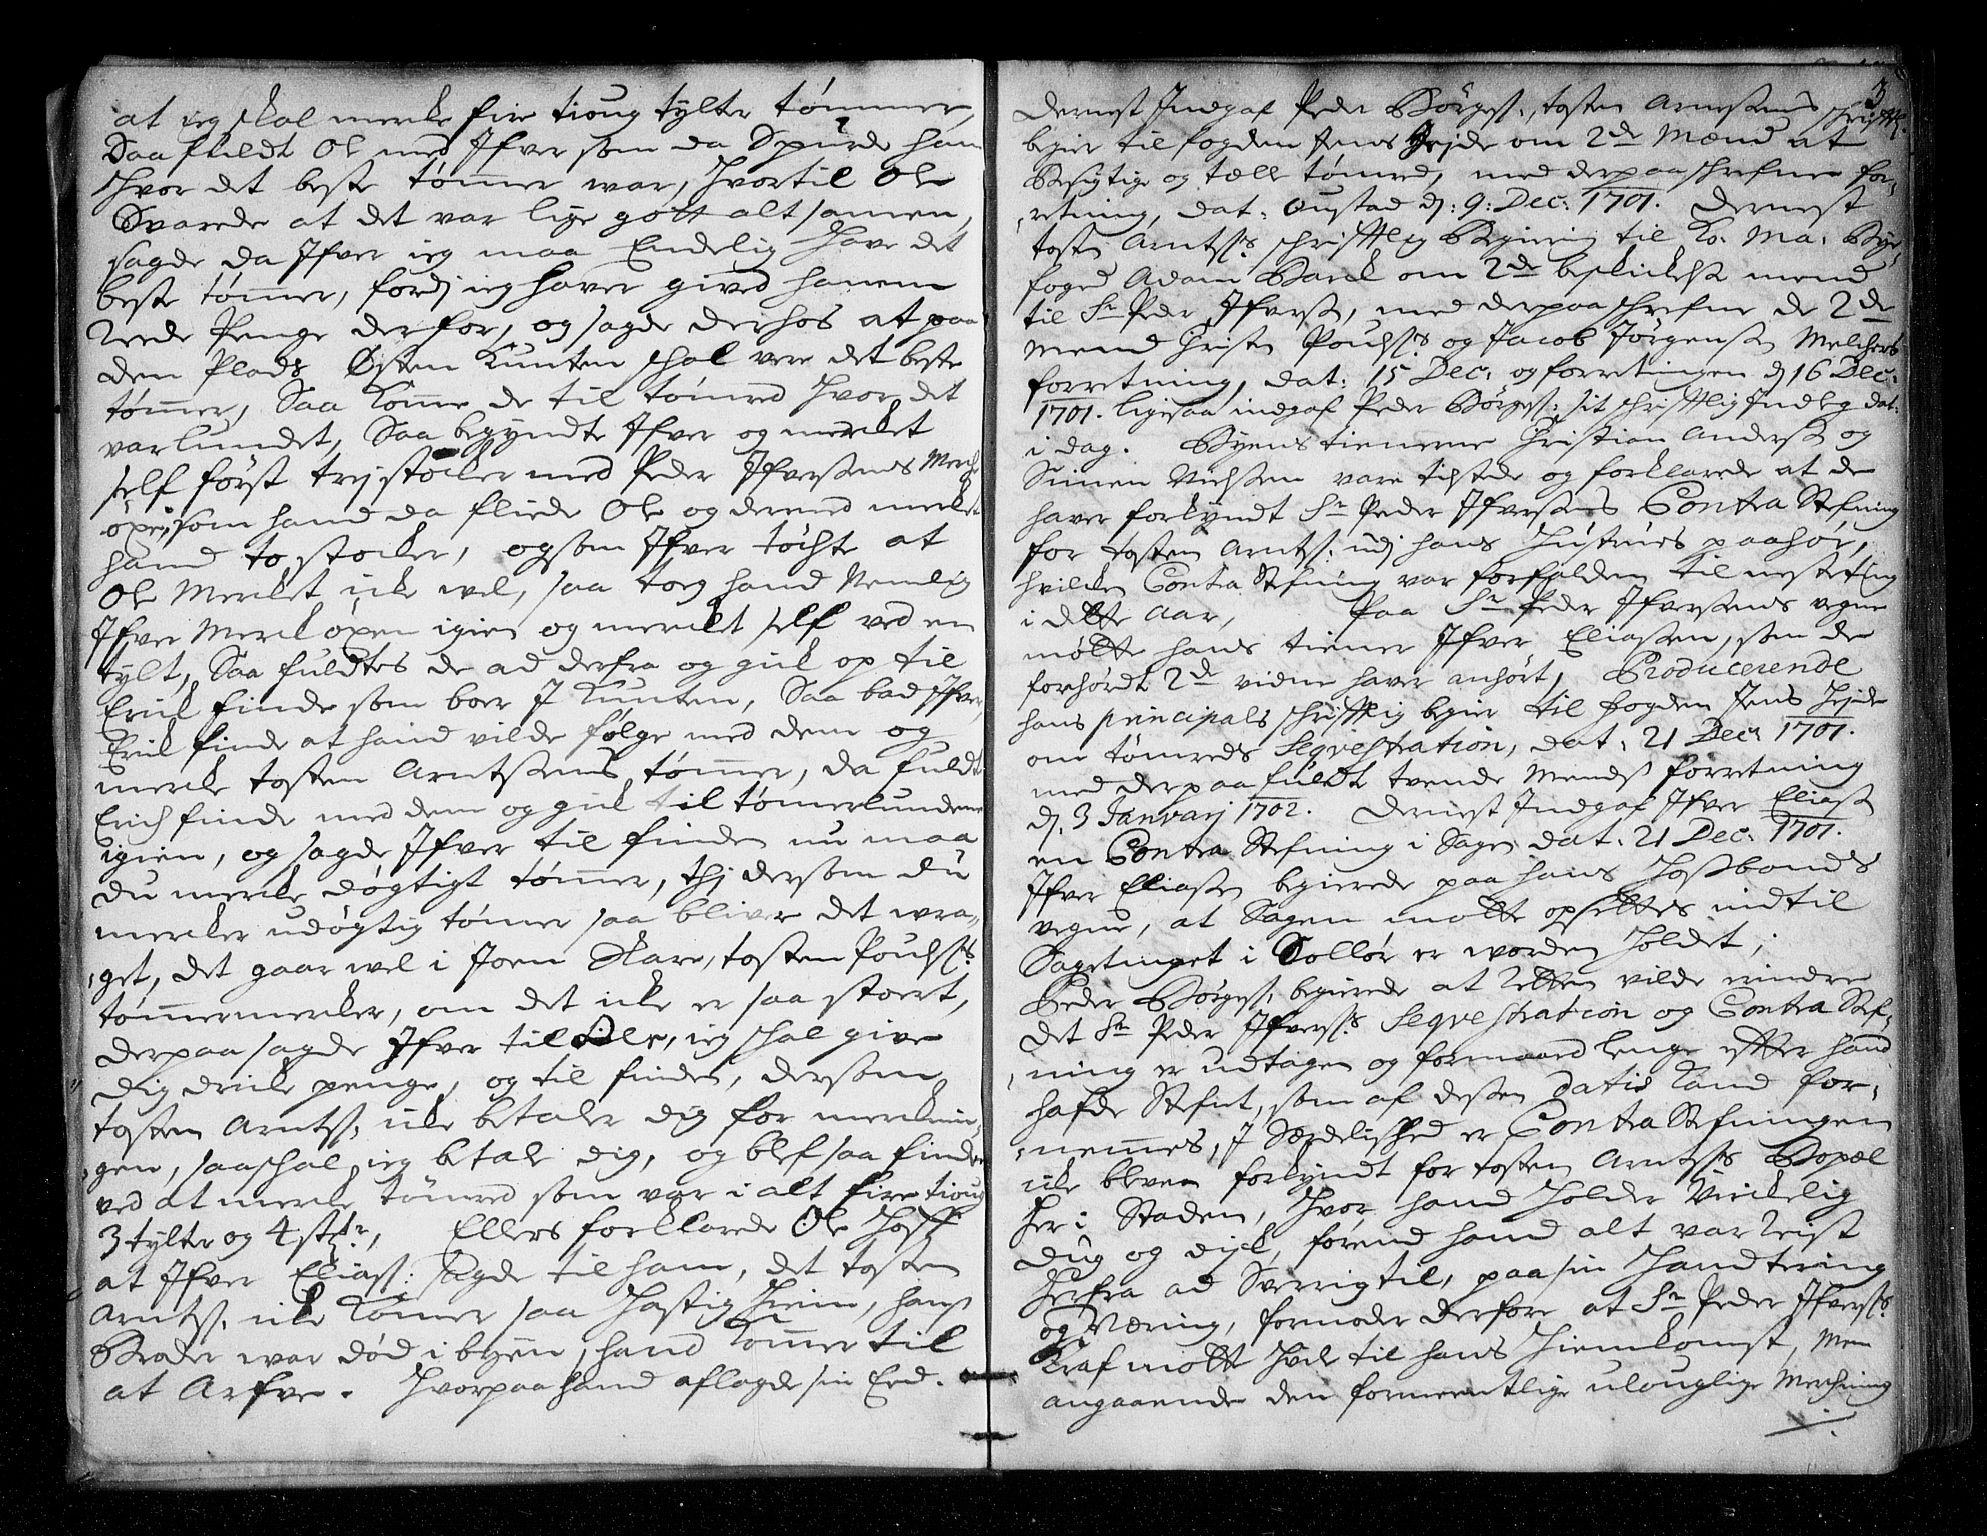 at ieg skal mercke fire tioug tylter tømmer,
Saa fuldt Ole med Ifver som da Spurde ham
hvor det beste tømmer war, hvortil Ole
Svarede at det var lige gott altsamen,
sagde da Ifver ieg maa Endelig have det
beste tømmer, fordj ieg haver gived hanem
rede Penge derfor, og sagde derhos at paa
den Plads Østen Kunten schal vere det beste
tømmer, Saa komme de til tømred hvor det
var lundet, Saa begyndte Ifver og mercket
self først trej stocker med Peder Ifversens Merch
öxe, som hand da fliede Ole og dermed mercket
hand to stocker, og som Ifver tøchte at
Ole Mercket icke vel, saa tog hand Nemlig
Ifver Merck öxen igien og mercket self ved en
tylt, Saa fuldtes de ad derfra og gick op til
Erick finde som boer J Kunten, Saa bad Ifver
Erick finde at hand vilde følge med dem og
mercke tosten Arntsens tømmer, da fuldt
Erich finde med dem og gick til tømmerlundene
igien, og sagde Ifver til finden nu maa
du mercke døgtigt tømmer, thj dersom du
mercker udøgtig tømer saa bliver det wra„
„get, det gaar wel i Joen Skare, tosten Pouls:s
tømmermercker, om det icke er saa stoert,
derpaa sagde Ifver til Ole, ieg schal give
dig dricke penge, og til finden, dersom
tosten Arnts: icke betaler dig for merknin„
„gen, saa schal ieg betale dig, og blef saa finden
ved at mercke tømred som var i alt fire tioug
3 tylter og 4 stck:r, Ellers forklarede Ole
at Ifver Eliass: sagde til ham, det tosten
Arntss. icke kommer saa hastig hiem, hans
Broder war død i byen, hand kommer til
at Arfve. Hvorpaa hand aflagde sin Eed.
3
Dernest Indgaf Peder Børgess:, tosten Arnesens schriftl:
begier til fogden Jens Hejde om 2de Mænd at
Besigtige og tælle tømred, med derpaa schrefne for„
„retning, dat: Oustad d: 9: Dec: 1701. Dernest
tosten Arntss:s schriftlig Begiering til Ko: Ma: Bye„
foged Adam Barck om 2de beskickelse mend
til Sr Peder Ifverss, med derpaa schrefne de 2de
Mend Christen Poulss:s og Jacob Jørgensen Melchers
forretning, dat: 15 Dec: og forretningen d 16 Dec:
1701. ligesaa indgaf Peder Børgess: sit schriftlig Indleg dat:
i dag. Byens tienerne Christian Anderss og
Simen Nielssen vare tilstede og forklarede at de
haver forkyndt Sr Peder Ifversens Contra Stefning
for tosten Arntss. udj hans Hustrues paahør,
hvilcken Contra Stefning var forfalden til neste ting
i dette Aar, Paa Sr Peder Ifversens vegne
mötte hans tiener Ifver Eliassen, som de
forhørdte 2de vidne haver anhørt, Producerende
hans principals schriftlig begier til fogden Jens Hejde
om tømreds Seqvestration, dat: 21 Dec: 1701.
med derpaa fuldt tvende Mends forretning
d. 3 Januarj 1702. Dernest Indgaf Ifver Eliass
en Contra Stefning i Sagen dat. 21 Dec: 1701.
Ifver Eliassen begierede paa hans Hosbonds
vegne, at Sagen motte opsettes indtil
Sagetinget i Sollør er worden holdet;
Peder Børgess: begierede at Retten vilde erindre
det Sr Peder Ifverss:s Seqvestration og Contra Stef„
„ning er udtagen og formaaed lenge efter hand
hafde Stefnt, som af dessen datis kand for„
„nemmes, J Særdelished er Contra Stefningen
icke bleven forkyndt for tosten Arntss:s Bopæl
her i Staden, hvor hand holder Virckelig
dug og disk, førend hand alt var reist
herfra ad Sverrig til, paa sin Handtering
og Næring, formoder derfore at Sr Peder Ifverss:s
Kraf motte hvile til hans Hiemkomst, Men
angaaende den formeentlige ulouglige Merchning